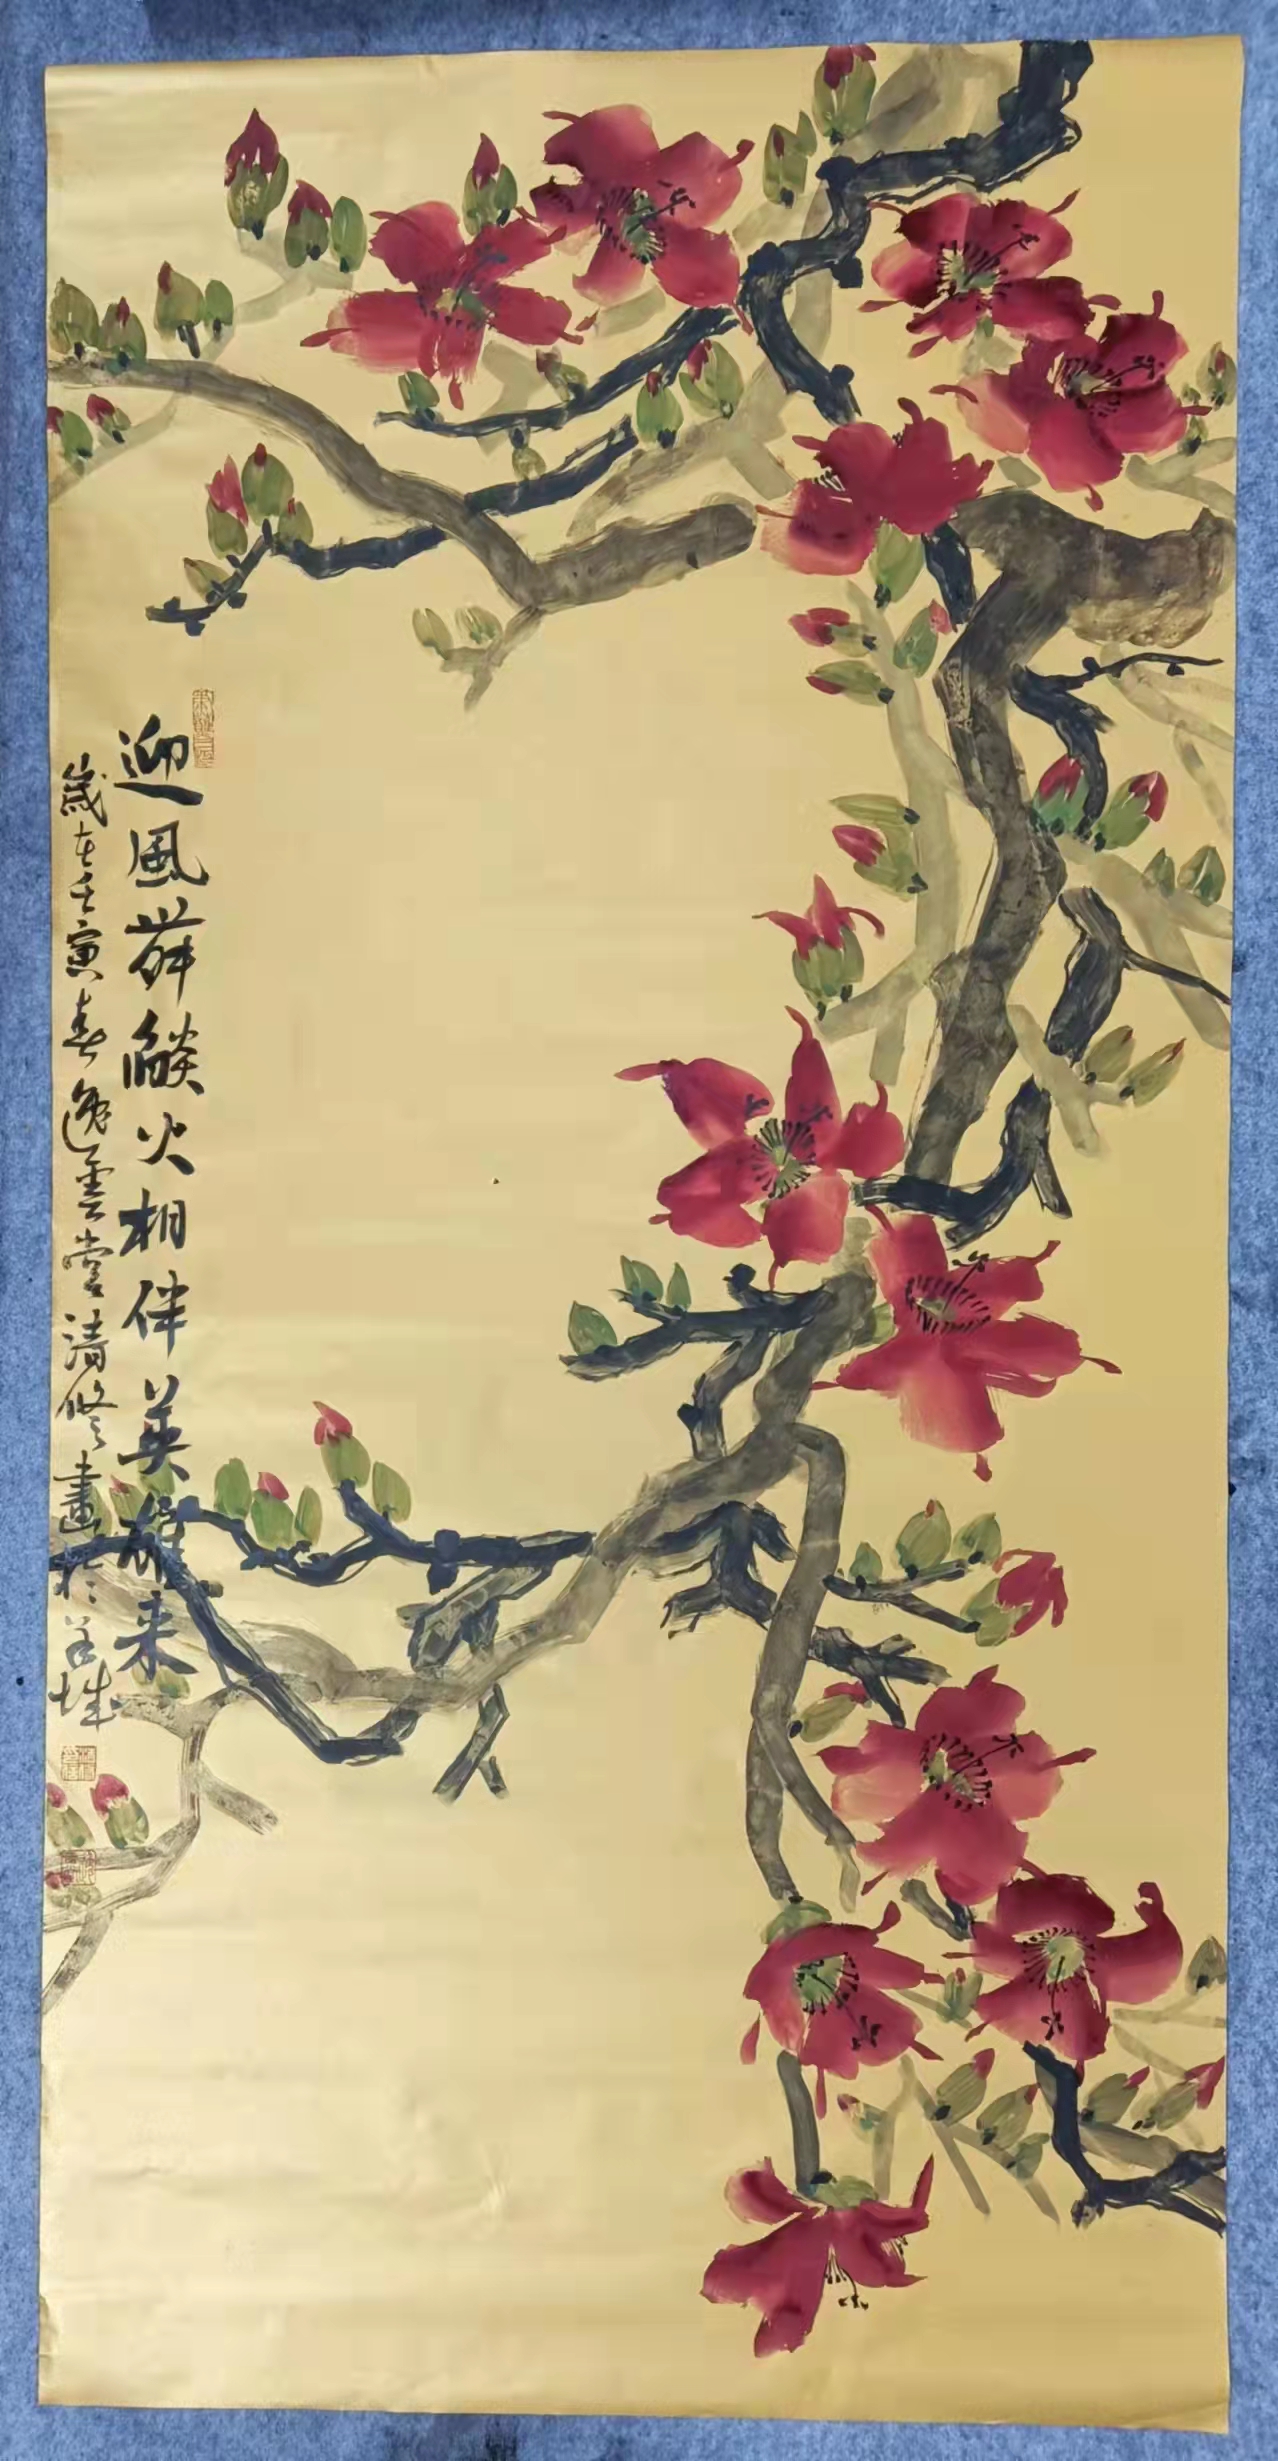 迎風舞燄火相伴英雄来
歲在壬寅春逸雲堂清修畫於羊城